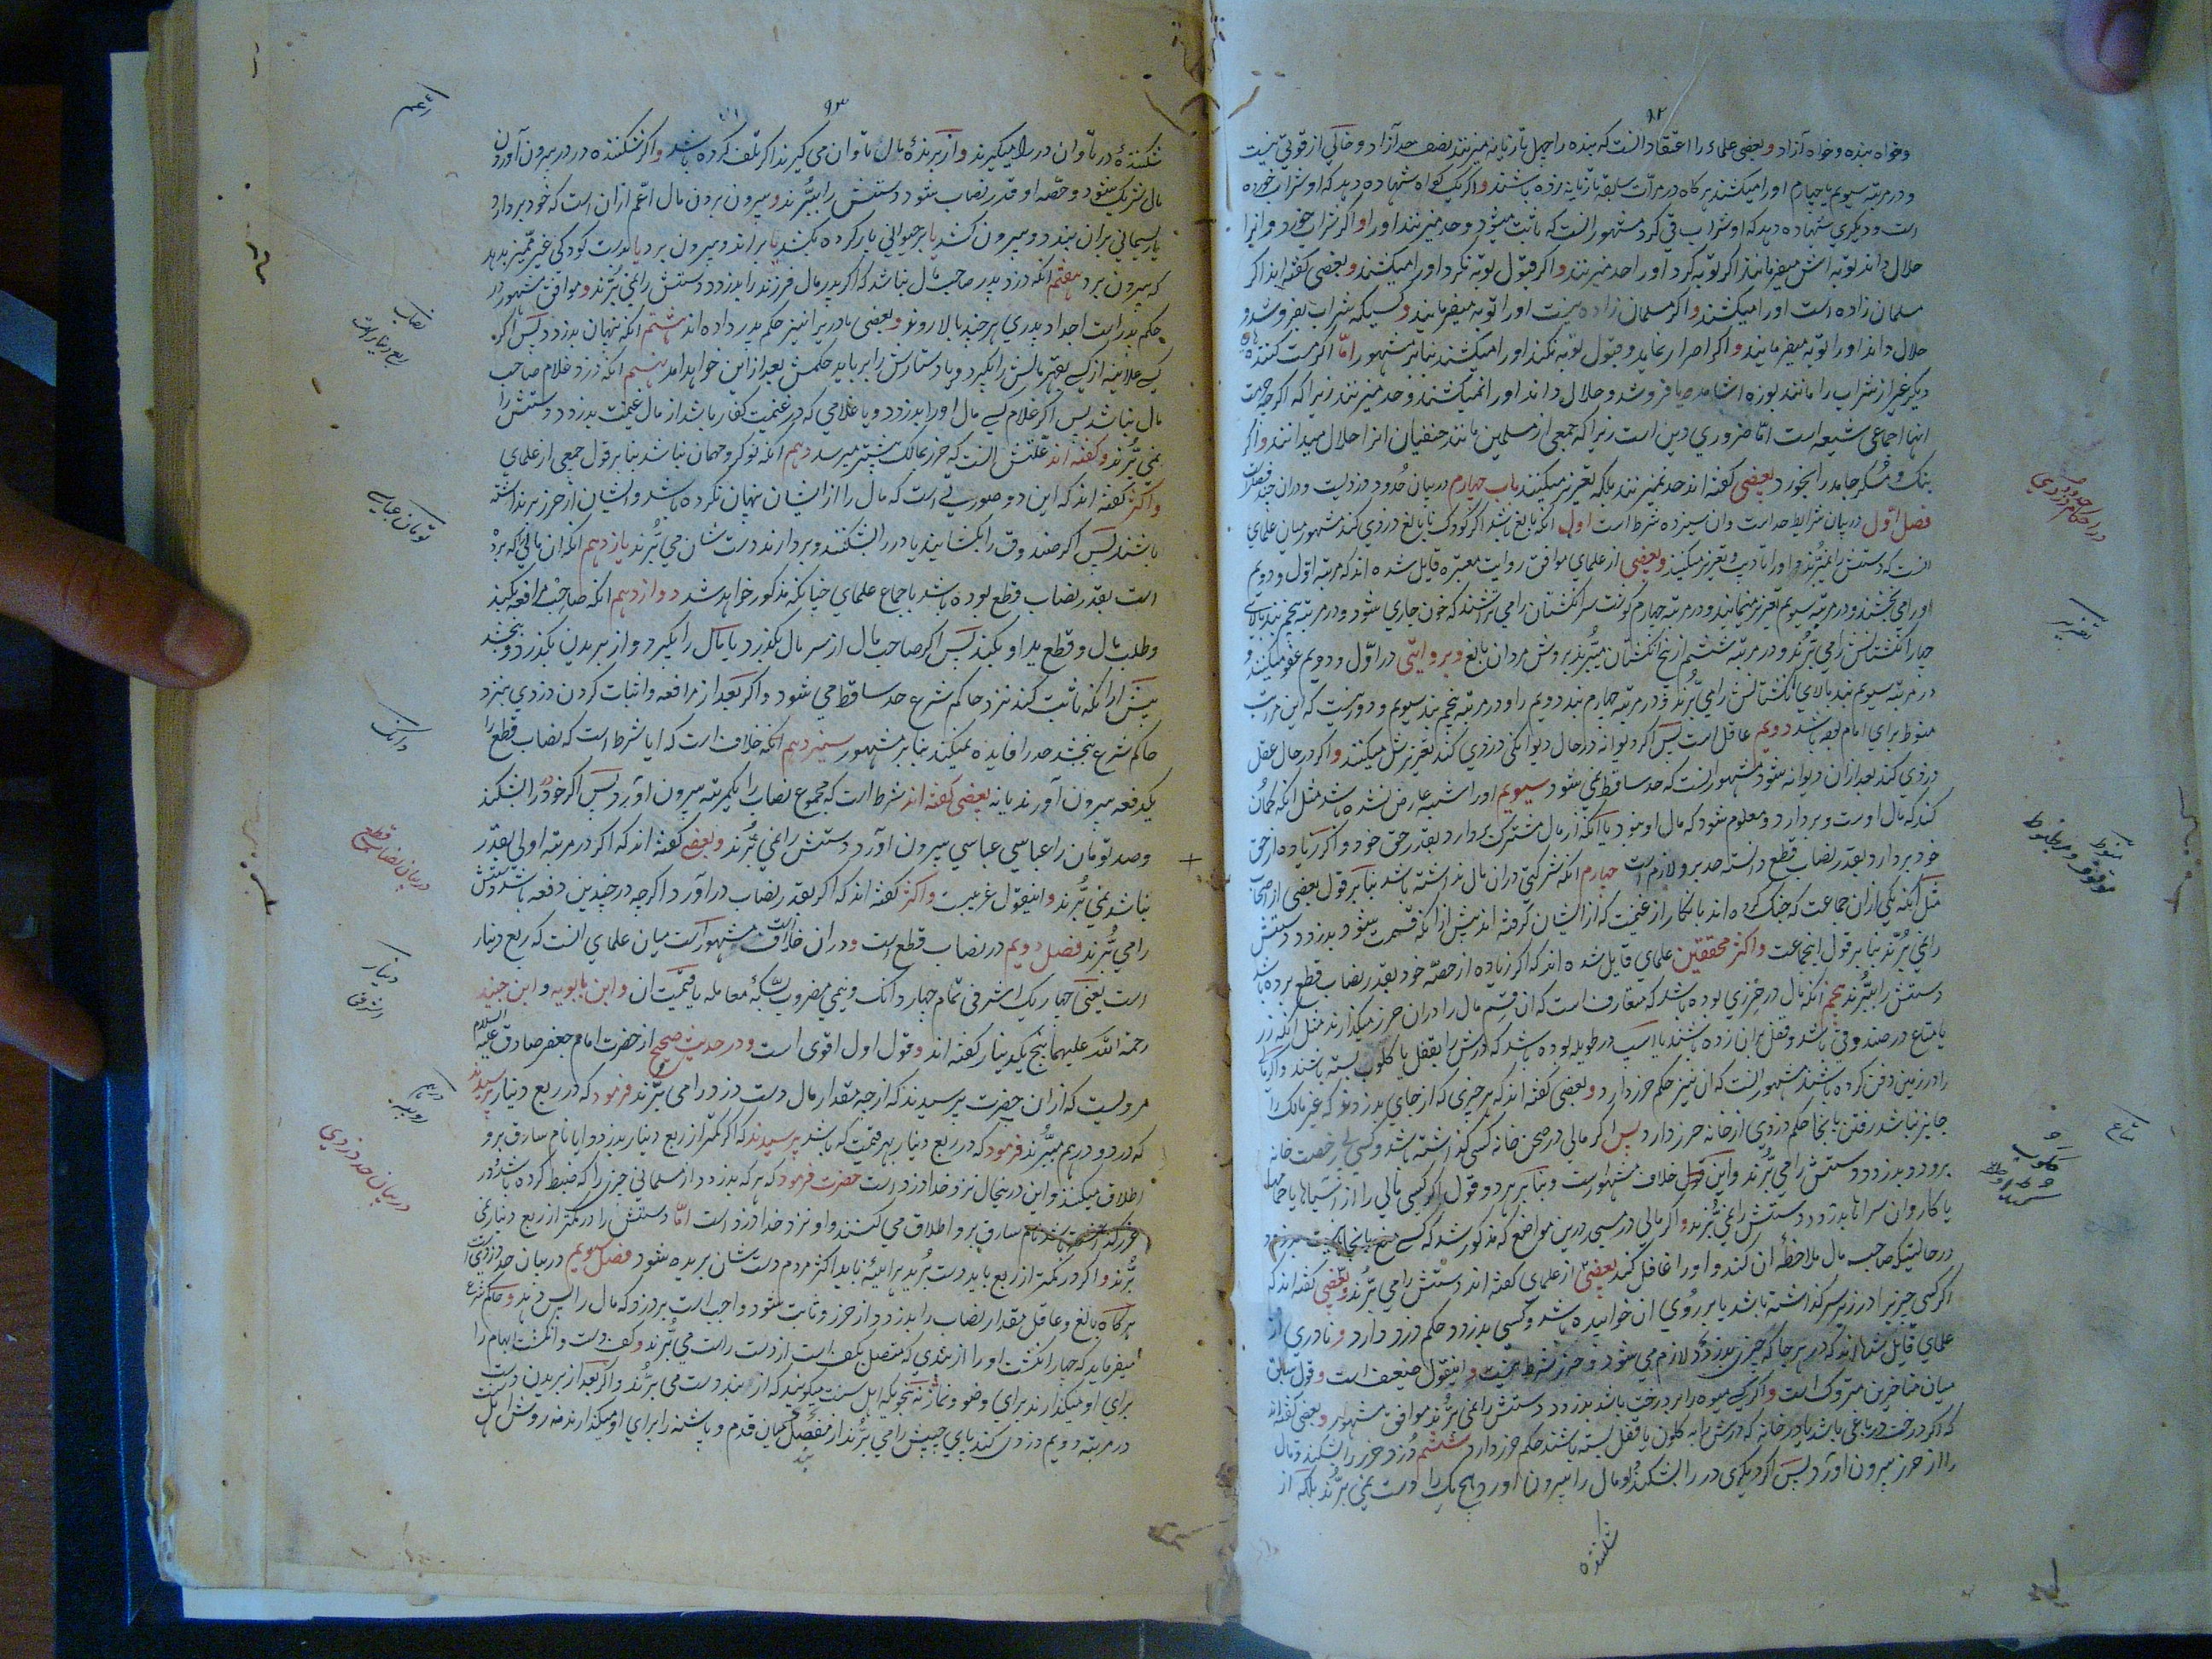 ۹۲
وخواه بنده وخواه آزاد و بعضی علماء را اعتقاد انست که بنده را چهل تازیانه میزنند نصف حد آزاد و خالی از قوتی نیست
و در مرتبه سیویم یا چهارم او را میکشند هر کاه در مرات سابقه تازیانه زده باشند و اکر یک کواه شهاده دهد که او شراب خورده
است و دیکری شهاده دهد که او شراب قی کرد مشهور انست که ثابت میشود و حد میزنند او را و اکر شراب خورد و انرا
حلال داند توبه اش میفرمایند اکر توبه کرد او را حد میزنند و اکر قبول توبه نکرد او را میکشند و بعضی کفته اند اکر
مسلمان زاده است او را میکشند و اکر مسلمان زاده نیست او را توبه میفرمایند و کسیکه شراب بفروشد و
حلال داند او را توبه میفرمایند و اکر اصرار نماید و قبول توبه نکند او را میکشند بنابر مشهور اما اکر مست کننده
دیکر غیر از شراب را مانند بوزه اشامد و یا فروشد و حلال داند او را نمیکشند و حد میزنند زیرا که اکر چه حرمت
انها اجماعی شیعه است اما ضروری دین است زیرا که جمعی از مسلمین مانند حنفیان انرا حلال میدانند و اکر
بنک و مسکر جامد را بخورد بعضی کفته اند حد نمیزنند بلکه تعزیر میکنند باب چهارم در بیان حدود دزدیست و دران چند فصلست
فصل اول در بیان شرایط حد است وان سیزده شرط است اول انکه بالغ باشد اکر کودک نابالغ دزدی کند مشهور میان علمای
انست که دستش را نمیبرند و او را تادیب و تعزیر میکنند و بعضی از علمای موافق روایت معتبره قایل شده اند که مرتبه اول و دویم
او را می بخشند و در مرتبه سیویم تعزیر مینمایند و در مرتبه چهارم کوشت سر انکشتان را می تراشند که خون جاری شود و در مرتبه پنجم بند بالای
چهار انکشتانش را می برند و در مرتبه ششم از بیخ انکشتان میبرند بروش مردان بالغ و بروایتی در اول و دویم عفو میکنند و
در مرتبه سیویم بند بالای انکشتانش را می برند و در مرتبه چهارم بند دویم را و در مرتبه پنجم بند سیویم و دور نیست که این مراتب
منوط برای امام بوده باشد دویم عاقل است پس اکر دیوانه در حال دیوانکی دزدی کند تعزیرش میکنند و اکر در حال عقل
دزدی کند بعد ازان دیوانه شود مشهور انست که حد ساقط نمی شود سیویم او را شبهه عارض نشده باشد مثل انکه کمان
کند که مال اوست و بردارد و معلوم شود که مال او نبود یا انکه از مال مشترک بردارد بقدر حق خود و اکر زیاده از حق
خود بردارد بقدر نصاب قطع دانسته حد برو لازم است چهارم انکه شرکتی دران مال نداشته باشد بنابر قول بعضی از اصحاب
مثل انکه یکی ازان جماعت که جنک کرده اند با کفار از غنیمت که از ایشان کرفته اند پیش از انکه قسمت شود بدزدد دستش
را نمی برند بنابر قول اینجماعت و اکثر محققین علمای قایل شده اند که اکر زیاده از حصه خود بقدر نصاب قطع برده باشد
دستش را میبرند پنجم انکه مال در حرزی بوده باشد که متعارف است که ان قسم مال را دران حرز میکذارند مثل انکه زر
یا متاع در صندوقی باشد و قفل بران زده باشند یا اسپ در طویله بوده باشد که درش را بقفل یا کلوب بسته باشند و اکر مال
را در زمین دفن کرده باشند مشهور انست که ان نیز حکم حرز دارد و بعضی کفته اند که هر چیزی که از جای بدزدند که غیر مالک را
جایز نباشد رفتن بانجا حکم دزدی از خانه حرز دارد پس اکر مالی در صحن خانه کسی کذاشته باشد و کسی بی رخصت خانه
برود و بدزدد دستش را می برند و این قول خلاف مشهور است و بنابر هر دو قول اکر کسی مالی را از اسیاها یا حمامها
یا کاروان سراها بدزدد دستش را نمی برند و اکر مالی در مسجد درین مواضع که مذکور شد که کسی
در حالتیکه صاحب مال ملاحظه ان کند و او را غافل کند بعضی از علمای کفته اند دستش را می برند و بعضی کفته اند که
اکر کسی چیزیرا در زیر سر کذاشته باشد یا بر روی ان خوابیده باشد و کسی بدزدد حکم دزد دارد و نادری از
علمای قایل شده اند که در هر جا که چیزی بدزدد حد لازم می شود و حرز شرط نیست و اینقول ضعیف است و قول سابق
میان متاخرین متروک است و اکر کسی میوه را بر درخت باشد بدزدد دستش را نمی برند موافق مشهور و بعضی کفته اند
که اکر درخت در باغی باشد یا در خانه که درش را به کلون یا قفل بسته باشند حکم حرز دارد ششم دزد حرز را بشکند و مال
را از حرز بیرون اورد پس اکر دیکری در را بشکند و او مال را بیرون اورد هیچ یک را دست نمی برند بلکه از
شکننده
در احکام حدود دزدی
تعزیر
منوط
موقوف و مربوط
متاع
کلوب
۹۳
شکننده در تاوان در را میکیرند و از برنده مال تاوان می کیرند اکر تلف کرده باشد و اکر شکننده در در بیرون آوردن
مال شریک شود و حصه او قدر نصاب شود دستش را ببرند و بیرون بردن مال اعم ازان است که خود بردارد
یا ریسمانی بران بندد و بیرون کشد یا بر حیوانی بار کرده بکشد یا براند و بیرون برد یا بدست کودکی غیر ممیز بدهد
که بیرون برد هفتم انکه دزد پدر صاحب مال نباشد که اکر پدر مال فرزند را بدزدد دستش را نمی برند و موافق مشهور در
حکم پدر است اجداد پدری هر چند بالا روند و بعضی مادر یرا نیز حکم پدر داده اند هشتم انکه پنهان بدزدد پس اکر
کسی علانیه از کسی بقهر مالش را بکیرد و یا دستارش را برباید حکمش بعد از این خواهد امد نهم انکه دزد غلام صاحب
مال نباشد پس اکر غلام کسی مال او را بدزدد و یا غلامی که در غنیمت کفار باشد از مال غنیمت بدزدد دستش را
نمی برند و کفته اند علتش انست که ضرر بمالک بیشتر میرسد دهم انکه نوکر و مهمان نباشد بنابر قول جمعی از علمای
و اکثر کفته اند که این دو صورتی است که مال را از ایشان پنهان نکرده باشد و ایشان از حرز برنداشته
باشند پس اکر صندوق را بکشایند یا در را بشکنند و بردارند دست شان می برند یازدهم انکه ان مالی را که برده
است بقدر نصاب قطع بوده باشد باجماع علمای چنانکه مذکور خواهد شد دوازدهم انکه صاحبش مرافعه بکند
و طلب مال و قطع ید او بکند پس اکر صاحب مال از سر مال بکذرد یا مال را بکیرد و از سر بریدن بکذرد و ببخشد
پیش از انکه ثابت کند نزد حاکم شرع حد ساقط می شود و اکر بعد از مرافعه و اثبات کردن دزدی نزد
حاکم شرع ببخشد حد را فایده نمیکند بنابر مشهور سیزدهم انکه خلاف است که ایا شرط است که نصاب قطع را
یکدفعه بیرون آورند یا نه بعضی کفته اند شرط است که مجموع نصاب را بیکمرتبه بیرون اورد پس اکر خود در را بشکند
و صد تومان را عباسی عباسی بیرون اورد دستش را نمی برند و بعضی کفته اند که اکر در مرتبه اولی بقدر
نباشد نمی برند و اینقول غریبست و اکثر کفته اند که اکر بقدر نصاب در آورد اکر چه در چندین دفعه باشد دستش
را می برند فصل دویم در نصاب قطع است و دران خلاف است مشهور است میان علمای انست که ربع دینار
است یعنی چهار یک اشرفی تمام چهار دانک و نیمی مضروب بسکه معامله یا قیمت ان و ابن بابویه و ابن جنید
رحمة الله علیهما پنج یک دینار کفته اند و قول اول اقوی است و در حدیث صحیح از حضرت امام جعفر صادق علیه السلام
مرویست که ازان حضرت پرسیدند که از چه مقدار مال دست دزد را می برند فرمود که در ربع دینار پرسیدند
که در دو درهم میبرند فرمود که در ربع دینار بهر قیمت که باشد پرسیدند که اکر کمتر از ربع دینار بدزدد ایا نام سارق برو
اطلاق میکنند و این در ینحال نزد خدا دزد است حضرت فرمود که هر که بدزدد از مسلمانی چیزی را که ضبط کرده باشد و در
سارق برو اطلاق می کنند و او نزد خدا دزد است اما دستش را در کمتر از ربع دینار نمی
برند و اکر در کمتر از ربع باید دست برید هر اینه باید اکثر مردم دست شان بریده شود فصل سیویم در بیان حد دزدی است
هر کاه بالغ و عاقل مقدار نصاب را بدزدد از حرز و ثابت شود واجب است بر دزد که مال را پس دهد و حاکم شرع
میفرماید که چهار انکشت او را از بندی که متصل بکف است از دست راست می برند و کف دست و انکشت ابهام را
برای او میکذارند برای وضو و نماز نه بنحویکه اهل سنت میکویند که از بند دست می برند و اکر بعد از بریدن دست
در مرتبه دویم دزدی کند پای چپش را می برند از مفصل میان قدم و پاشنه را برای او میکذارند نه روش اهل سنت
بند
اعم
نصاب
ربع دینار است
تومان عباسی
دانک
در بیان نصاب قطع
دینار
اشرفی
درهم
روپیه
در بیان حد دزدی